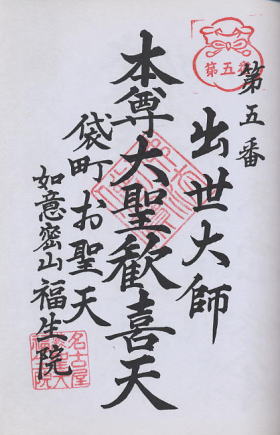 第五番
第五番
出世大師
本尊大聖歓喜天
袋町お聖天
如意密山福生院
名古屋